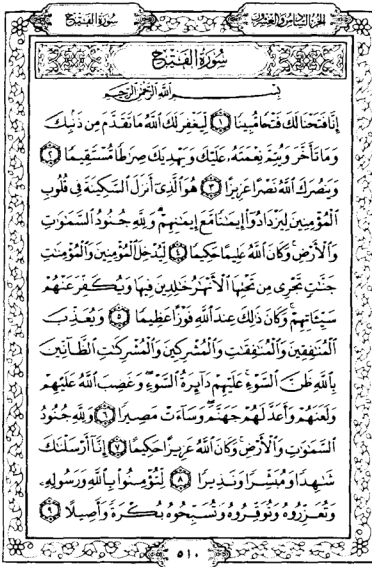 سُورَةُ الفَتْحِ
الجُزْءُ السَّادِسُ وَالعِشْرُونَ
سُورَةُ الفَتْحِ
بِسْمِ اللَّهِ الرَّحْمَٰنِ الرَّحِيمِ
إِنَّا فَتَحْنَا لَكَ فَتْحًا مُّبِينًا ١ لِّيَغْفِرَ لَكَ اللَّهُ مَا تَقَدَّمَ مِن ذَنۢبِكَ
وَمَا تَأَخَّرَ وَيُتِمَّ نِعْمَتَهُۥ عَلَيْكَ وَيَهْدِيَكَ صِرَٰطًا مُّسْتَقِيمًا ٢
وَيَنصُرَكَ اللَّهُ نَصْرًا عَزِيزًا ٣ هُوَ الَّذِىٓ أَنزَلَ السَّكِينَةَ فِى قُلُوبِ
الْمُؤْمِنِينَ لِيَزْدَادُوٓا۟ إِيمَٰنًا مَّعَ إِيمَٰنِهِمْ ۗ وَلِلَّهِ جُنُودُ السَّمَٰوَٰتِ
وَالْأَرْضِ ۚ وَكَانَ اللَّهُ عَلِيمًا حَكِيمًا ٤ لِّيُدْخِلَ الْمُؤْمِنِينَ وَالْمُؤْمِنَٰتِ
جَنَّٰتٍ تَجْرِى مِن تَحْتِهَا الْأَنْهَٰرُ خَٰلِدِينَ فِيهَا وَيُكَفِّرَ عَنْهُمْ
سَيِّـَٔاتِهِمْ ۚ وَكَانَ ذَٰلِكَ عِندَ اللَّهِ فَوْزًا عَظِيمًا ٥ وَيُعَذِّبَ
الْمُنَٰفِقِينَ وَالْمُنَٰفِقَٰتِ وَالْمُشْرِكِينَ وَالْمُشْرِكَٰتِ الظَّآنِّينَ
بِاللَّهِ ظَنَّ السَّوْءِ ۚ عَلَيْهِمْ دَآئِرَةُ السَّوْءِ ۖ وَغَضِبَ اللَّهُ عَلَيْهِمْ
وَلَعَنَهُمْ وَأَعَدَّ لَهُمْ جَهَنَّمَ ۖ وَسَآءَتْ مَصِيرًا ٦ وَلِلَّهِ جُنُودُ
السَّمَٰوَٰتِ وَالْأَرْضِ ۚ وَكَانَ اللَّهُ عَزِيزًا حَكِيمًا ٧ إِنَّآ أَرْسَلْنَٰكَ
شَٰهِدًا وَمُبَشِّرًا وَنَذِيرًا ٨ لِّتُؤْمِنُوا۟ بِاللَّهِ وَرَسُولِهِۦ
وَتُعَزِّرُوهُ وَتُوَقِّرُوهُ وَتُسَبِّحُوهُ بُكْرَةً وَأَصِيلًا ٩
٥١٠